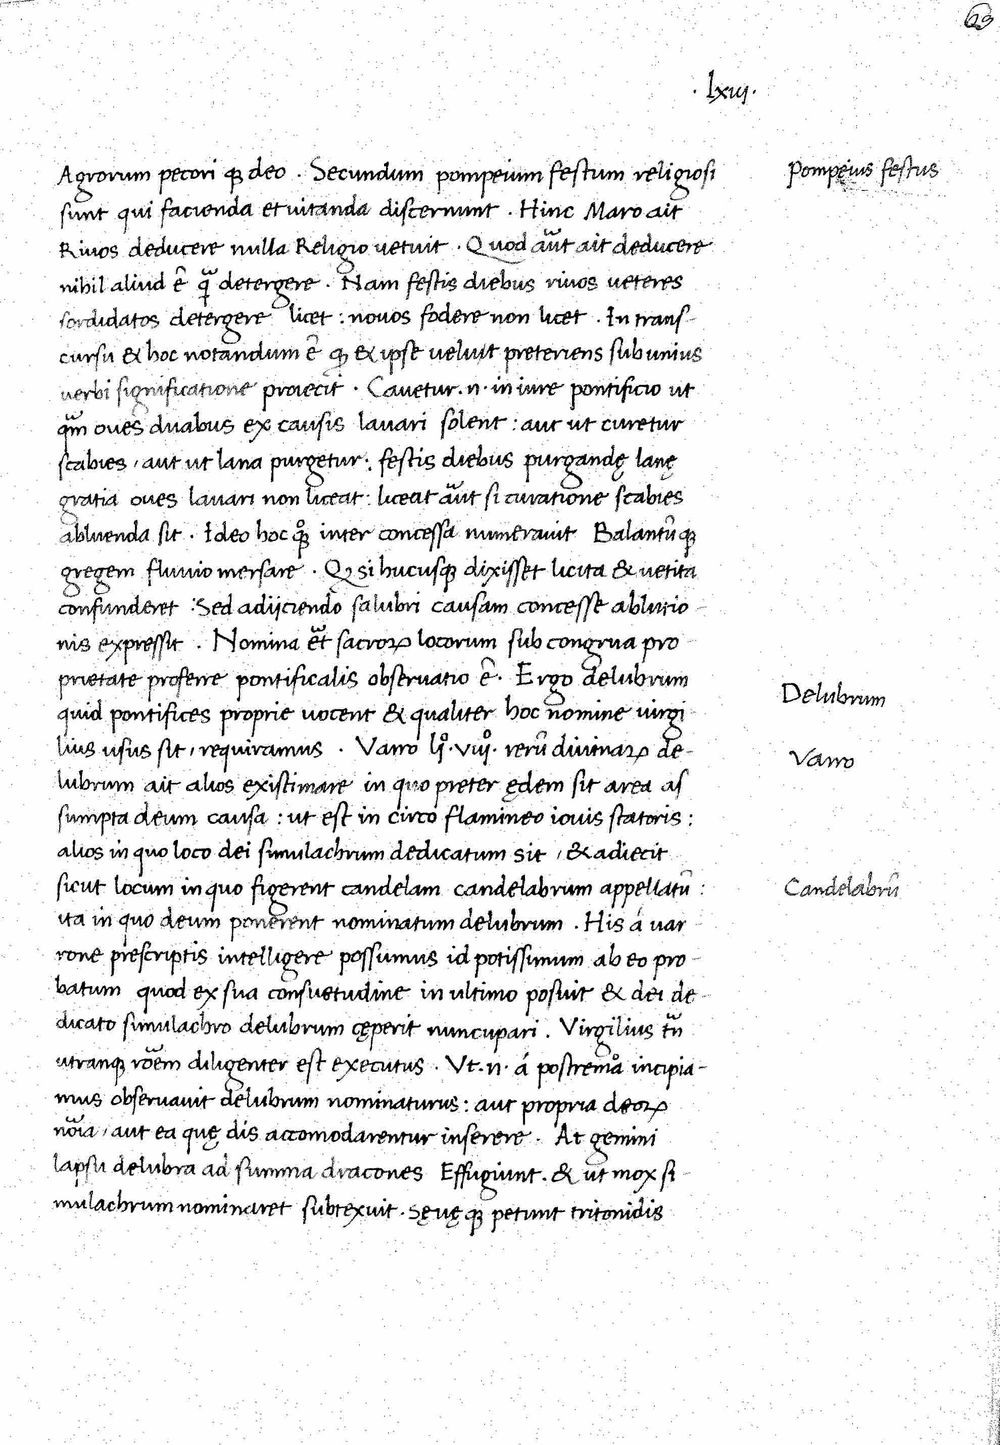 · lxııȷ ·
Agrorum pecori qꝫ deo . Secundum pompeium festum religiosi
Pompeius festus
sunt qui facienda et uitanda discernunt . Hinc Maro ait
Riuos deducere nulla Religio uetuit . Quod aũt ait deducere
nihil aliud ẽ q̃ detergere . Nam festis diebus riuos ueteres
sordidatos detergere licet : nouos fodere non licet . In trans-
cursu & hoc notandum ẽ qꝫ & ipse uelut preteriens sub unius
uerbi significatione proiecit . Cauetur .n. in iure pontificio ut
qm̃ oues duabus ex causis lauari solent : aut ut curetur
scabies , aut ut lana purgetur : festis diebus purgandę lanę
gratia oues lauari non liceat : liceat aũt si curatione scabies
abluenda sit . Ideo hoc qꝫ inter concessa numerauit Balantũ qꝫ
gregem fluuio mersare . Q si hucusqꝫ dixisset licita & uetita
confunderet : Sed adijciendo salubri causam concesse ablutio-
nis expressit . Nomina ẽt sacroꝝ locorum sub congrua pro-
prietate proferre pontificalis obseruatio ẽ . Ergo delubrum
Delubrum
quid pontifices proprie uocent & qualiter hoc nomine uirgi-
lius usus sit , requiramus . Varro li͛º .viijº. rerũ diuinaꝝ de-
Varro
lubrum ait alios existimare in quo preter ędem sit area as
sumpta deum causa : ut est in circo flamineo iouis statoris :
alios in quo loco dei simulachrum dedicatum sit , & adiecit
sicut locum in quo figerent candelam candelabrum appellatũ :
Candelabrũ
ita in quo deum ponerent nominatum delubrum . His á uar-
rone prescriptis intelligere possumus id potissimum ab eo pro-
batum quod ex sua consuetudine in ultimo posuit & dei de-
dicato simulachro delubrum cęperit nuncupari . Virgilius tñ
utranqꝫ rõem diligenter est executus . Vt .n. á postrema incipia-
mus obseruauit delubrum nominaturus : aut propria deoꝝ
nõia , aut ea quę dis accomodarentur inserere . At gemini
lapsu delubra ad summa dracones Effugiunt . & ut mox si-
mulachrum nominaret subtexuit . Sęuę qꝫ petunt tritonidis